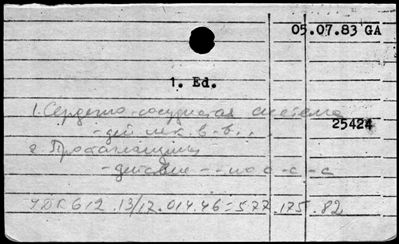 05.07.83 GA
1. Ed.
1. Сердечно-сосудистая система
- дей. лек. в-в...
25424
2. Простагландины
- действие - - на с-с-с
УДК 612.13/17.014.46=577.175.82